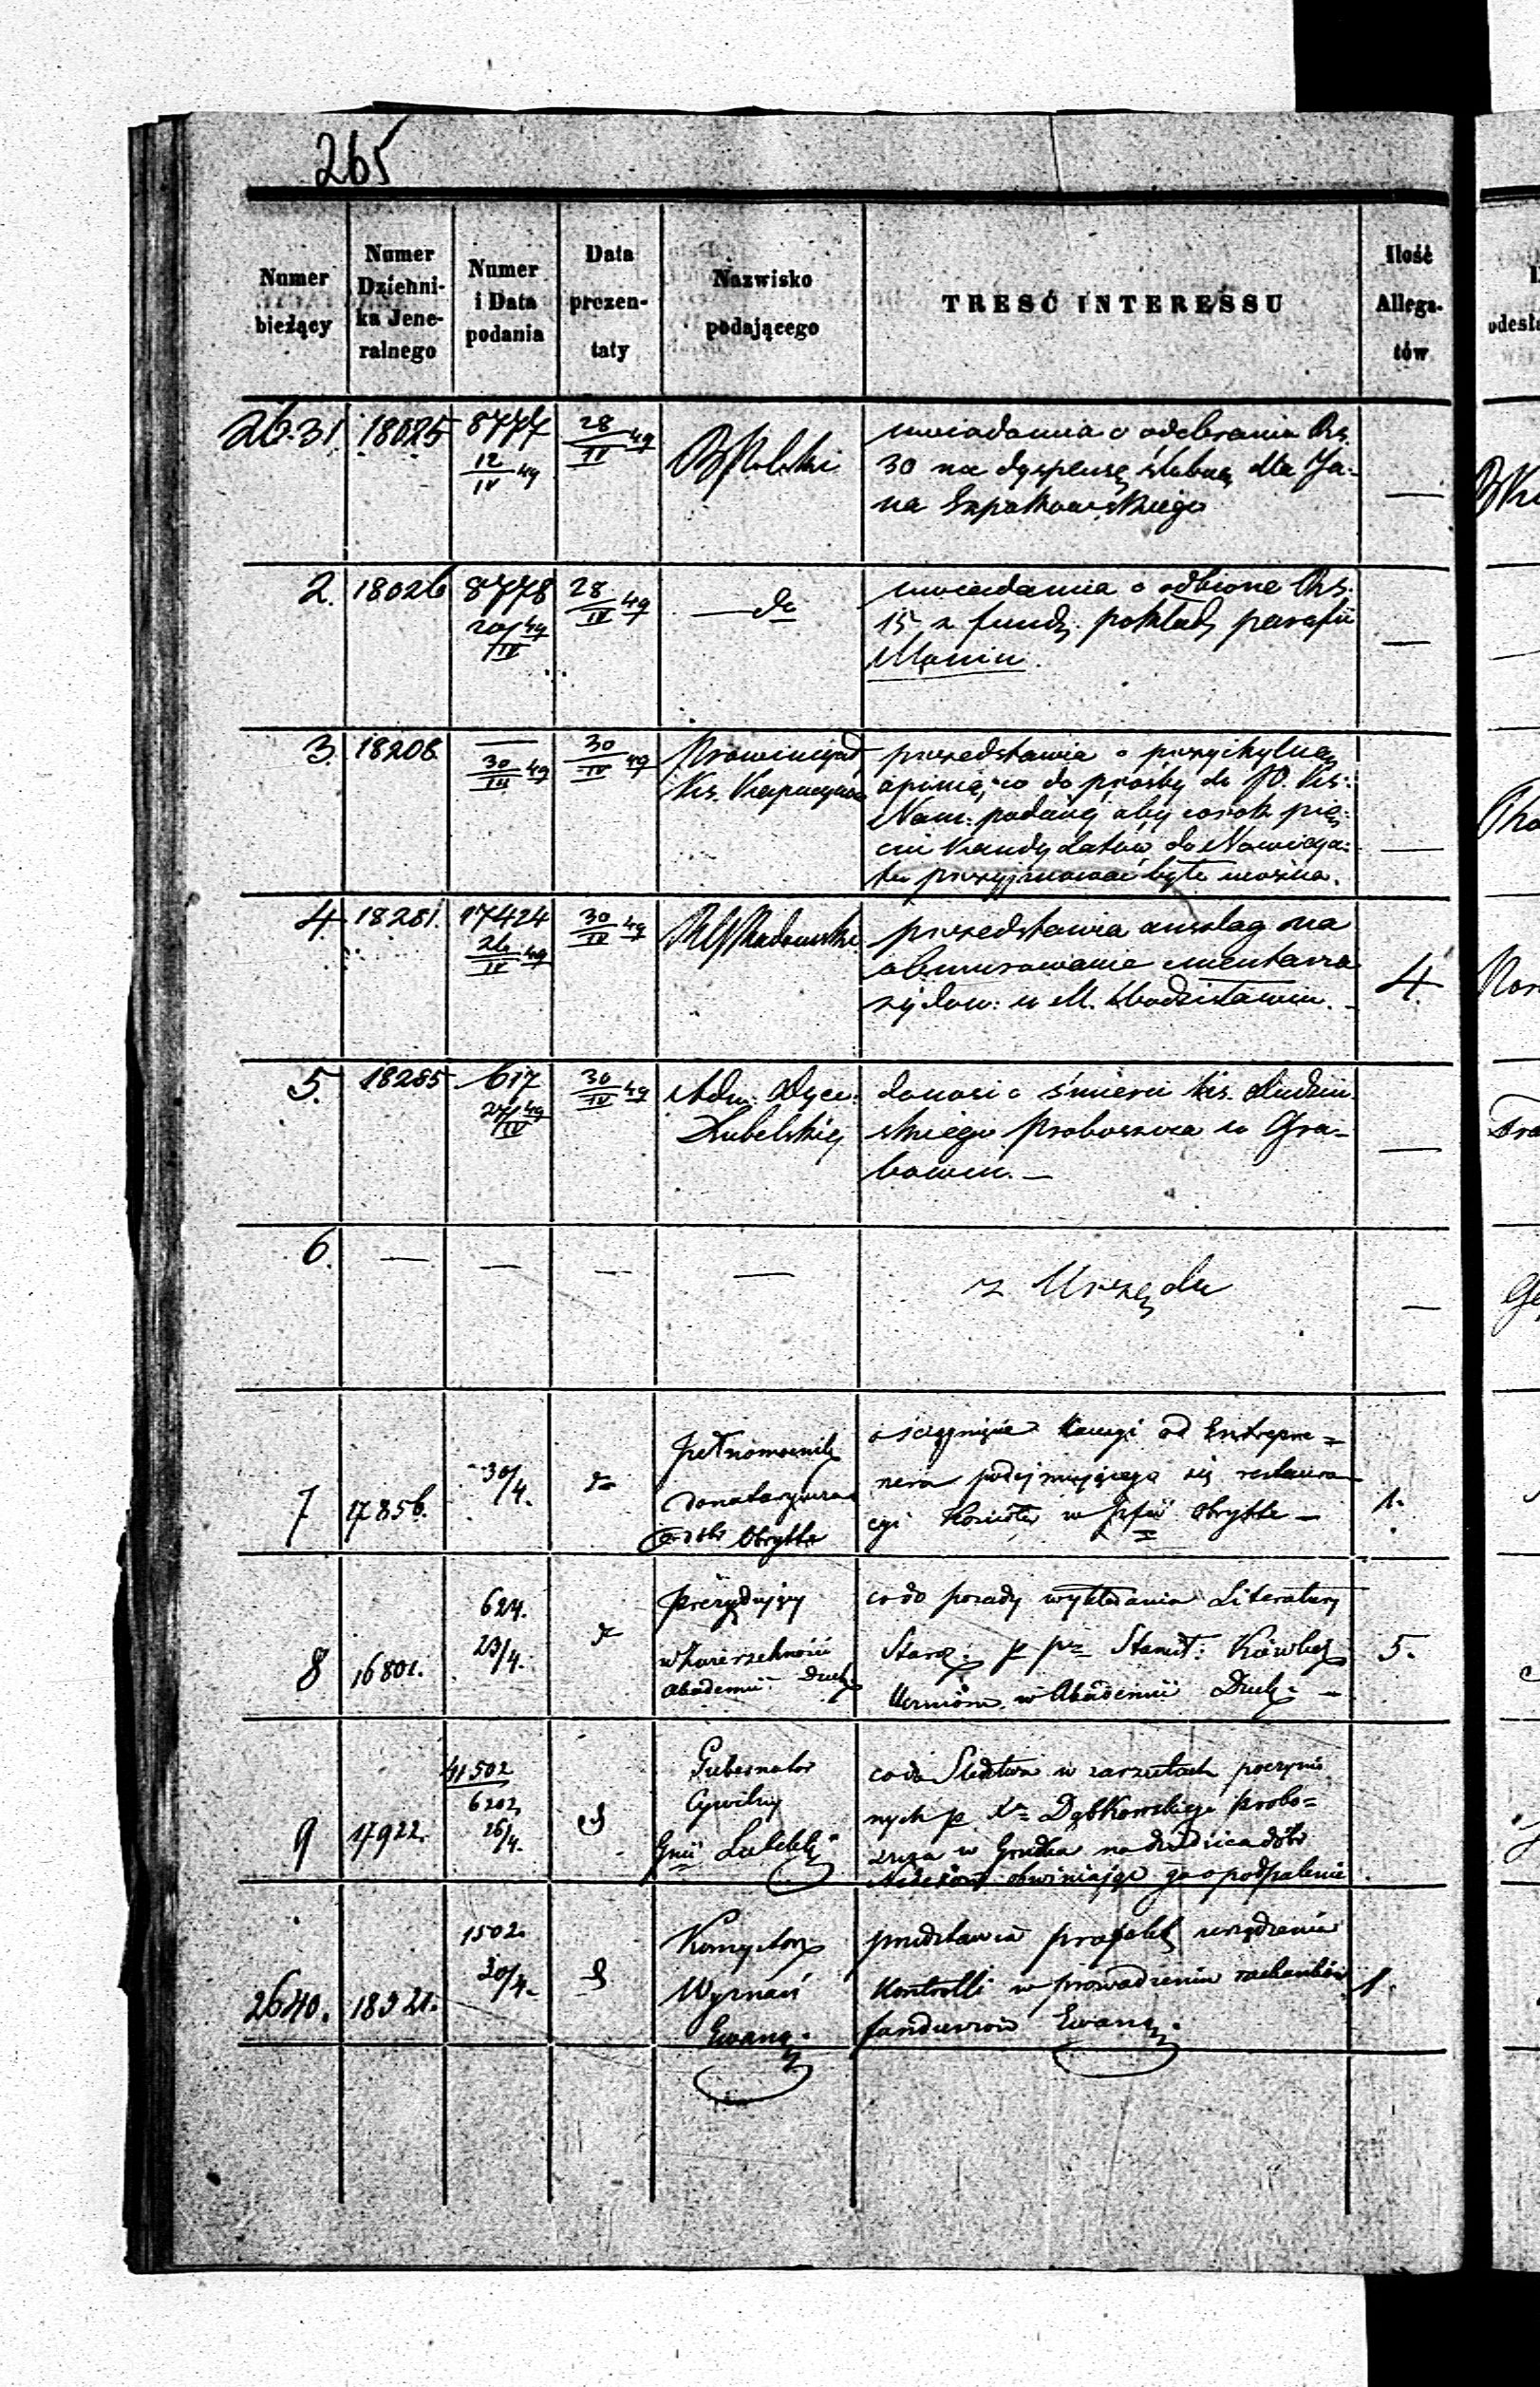 265
Numer bieżący
Numer Dziehnika Jeneralnego
Numer i Data podania
Data prezentaty
Nazwisko podającego
TREŚĆ INTERESSU
Ilość Allegatów
2631 18025 8777 12/IV 49 28/IV 49 B Polski
uwiadamia o odebraniu Rs.
30 na dyspensę ślubną dla Ja-
na Szpakowskiego
—
2. 18026 8778 20/IV 49 28/IV 49 — do
uwiadamia o odbiorze Rs.
15 z fundu. pokład. parafii
—
3. 18208 — 30/III 49 30/IV 49
Prowincyał
Ks. Kapucynów
przedstawia o przychylną
opinią, co do prośby do JO. Ks:
Nam: podanej aby corok pię-
ciu kandydatów do Nowicya-
tu przyjmować było można.
—
4. 18281. 17424 26/IV 49 30/IV 49 RG Radomski
przedstawia anszlag na
obmurowanie cmentarza
żydow: w M. Wodzisławiu. —
4.
5. 18285 617 27/IV 49 30/IV 49
Adm. Dyec:
Lubelskiej
donosi o śmierci ks.
skiego Proboszcza w Gra-
bowcu. —
—
6. — — — —
z Urzędu
—
7 17856. 30/4.
Pełnomocnik
Donataryusza
dóbr Obryttе
o ściągnięcie kaucyi od Entrepre=
nera podejmującego się restaura
cyi Kościoła w Pfii Obrytte —
1.
8 16801. 624. 23/4.
Prezydujący
w Zwierzchności
Akademii Duch
co do posady wykładania Literatury
Staroż: p Stanisł:
Uczniom w Akademii Duch: —
5.
9 17922. 41502 6202 26/4.
Gubernator
Cywilny
Gnii Lubelsk:
co do Śledztwa w zarzutach poczynio
nych p X Dąbkowskiego probo=
szcza w Grudka na dziedzica dóbr
obwiniając go o podpalenie
2640. 18321. 1502. 30/4.
Konsystorz
Wyznań
Ewang.
przedstawia projekt urządzenia
Kontrolli w prowadzeniu rachunków
funduszów Ewang.
1.